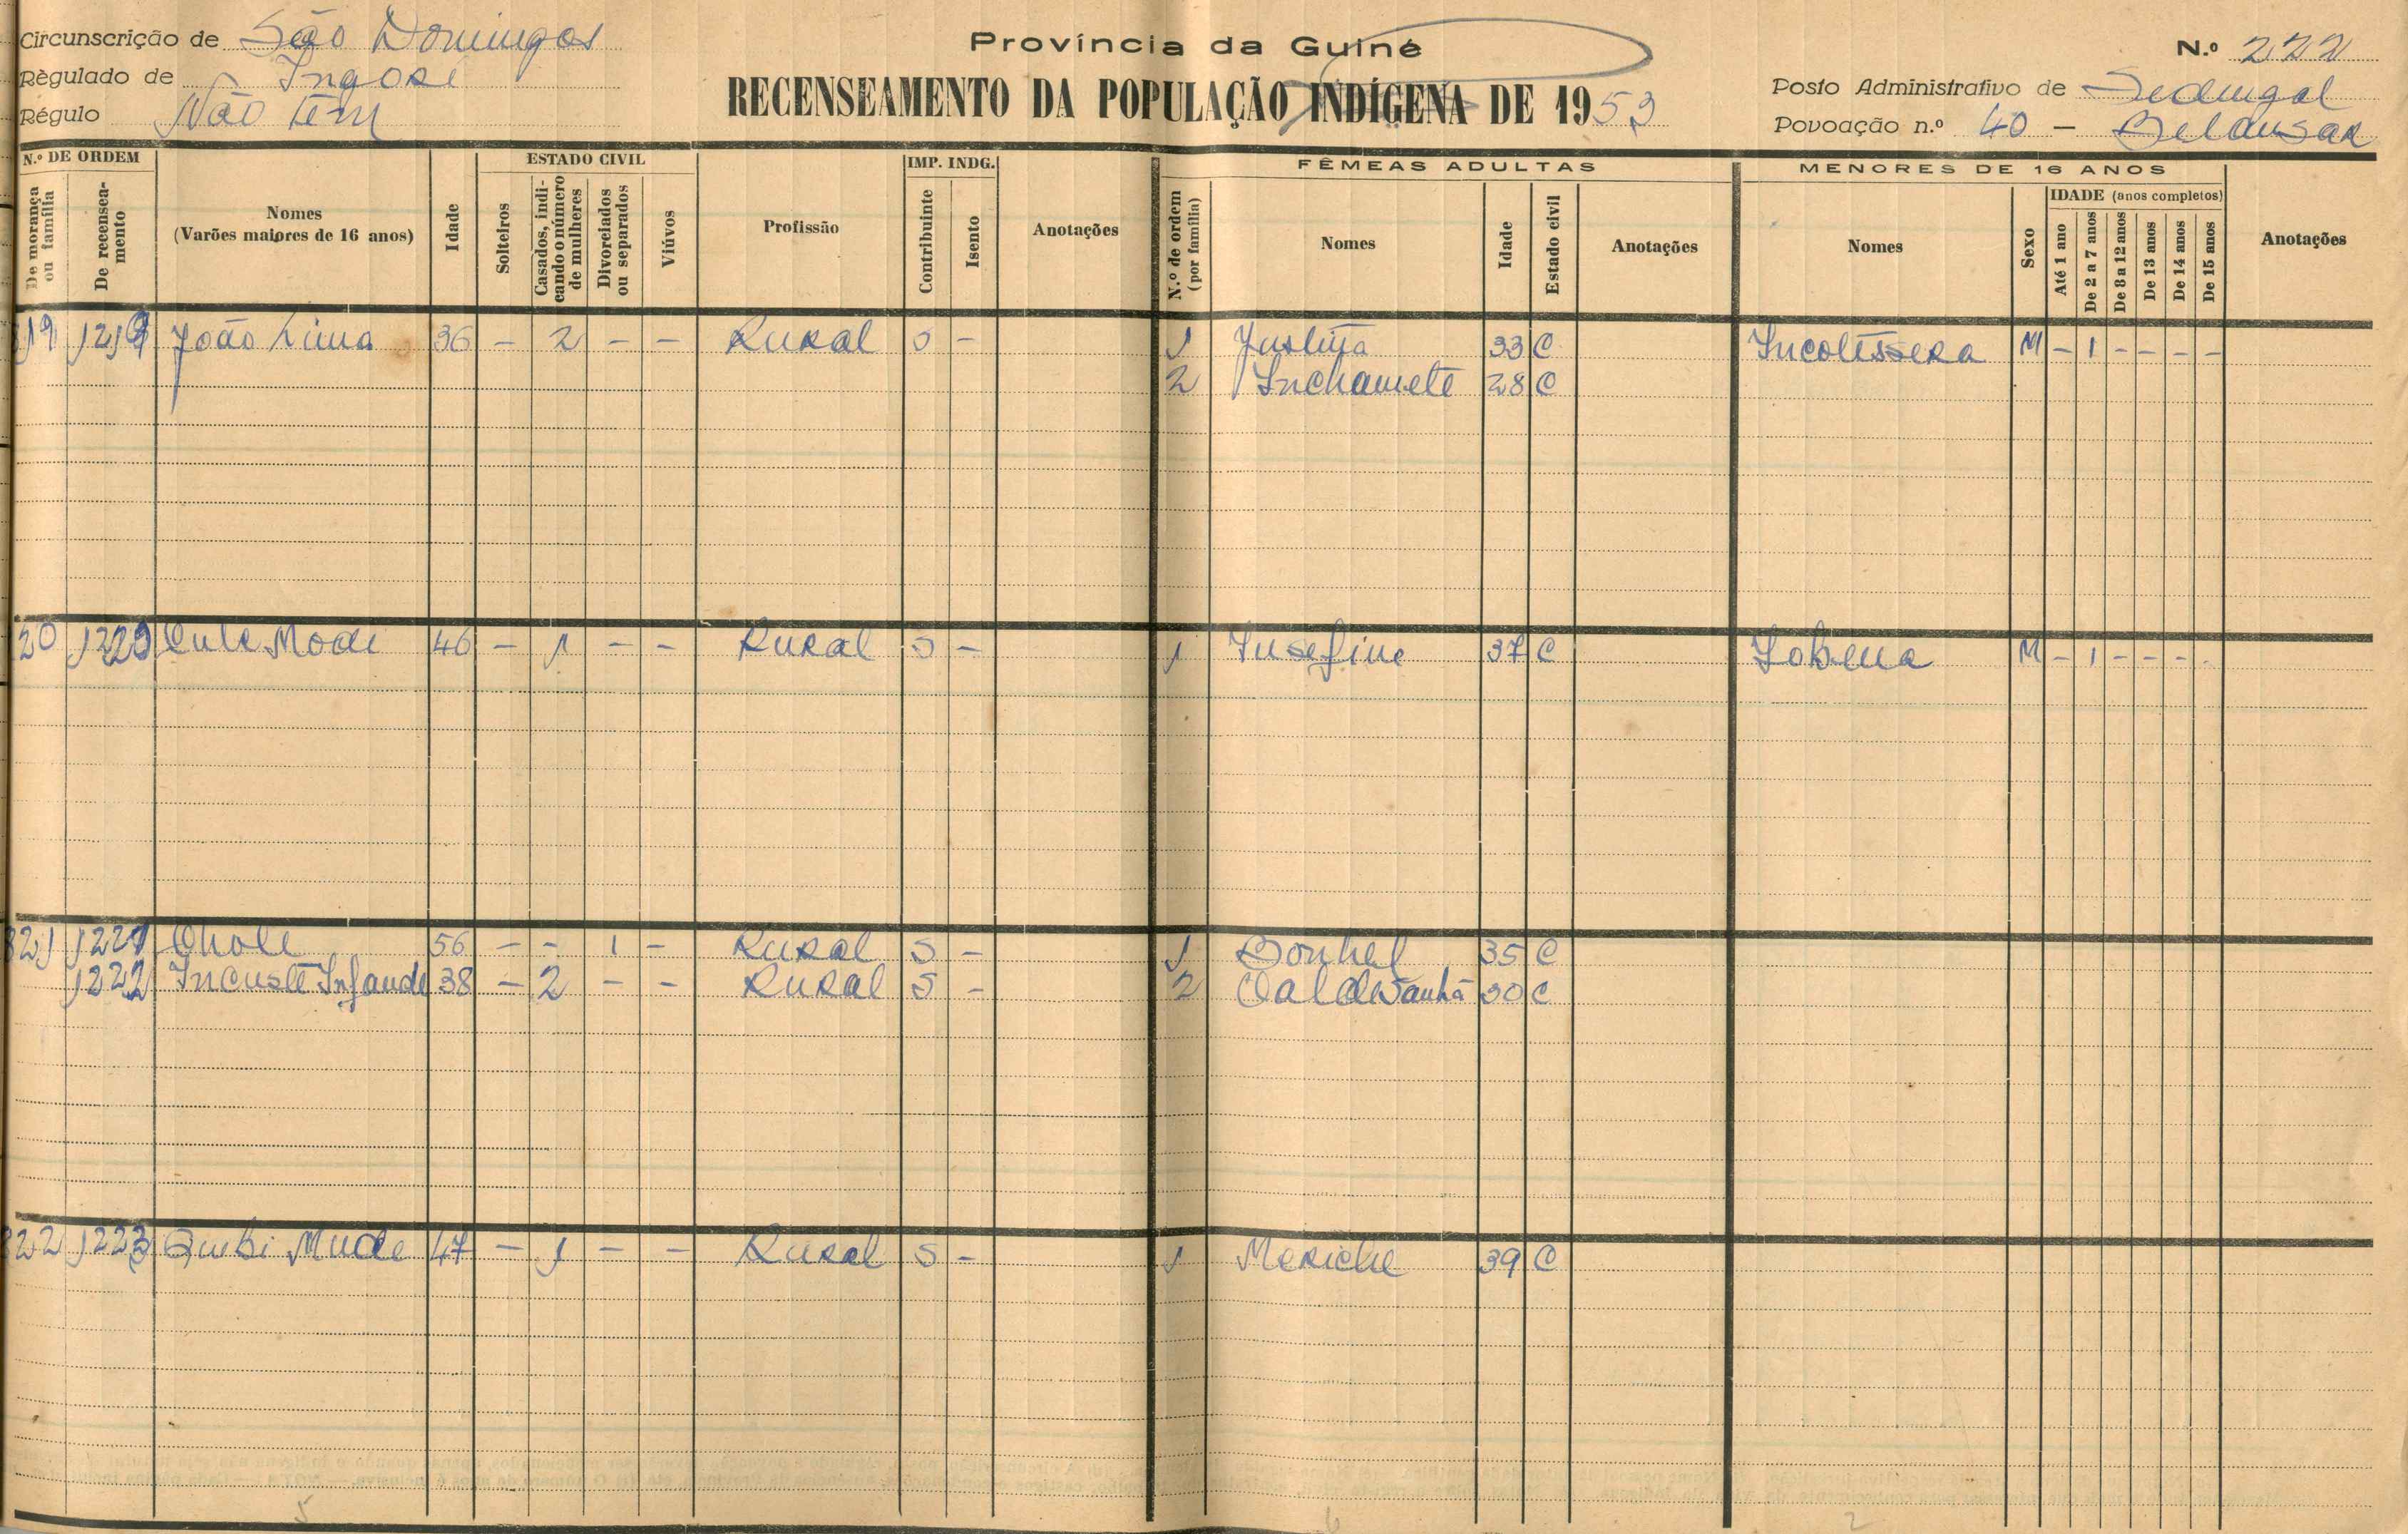 Circunscrição de São Domingos
Régulado de Ingoré
Régulo Não têm
Província da Guiné
RECENSEAMENTO DA POPULAÇÃO INDÍGENA DE 1953
N.º 222
Posto Administrativo de Sedengal
Povoação n.º 40 -
N.º DE ORDEM
De morança ou família
De recenseamento
Nomes
(Varões maiores de 16 anos)
Idade
ESTADO CIVIL
Solteiros
Casados, indicando o número de mulheres
Divorciados ou separados
Viúvos
Profissão
IMP. INDG.
Contribuinte
Isento
Anotações
FÊMEAS ADULTAS
N.º de ordem (por família)
Nomes
Idade
Estado civil
Anotações
MENORES DE 16 ANOS
Nomes
Sexo
IDADE (anos completos)
Até 1 ano
De 2 a 7 anos
De 8 a 12 anos
De 13 anos
De 14 anos
De 15 anos
Anotações
19 1219 João Lima 36 - 2 - - Rural S - 1 Justina 33 C Incotissera M - 1 - - - -
2 Inchamete 28 C
20 1220 Modi 46 - 1 - - Rural S - 1 Jusefine 37 C M - 1 - - - -
821 1221 Chole 56 - - 1 - Rural S - 1 35 C
1222 Incuste Infande 38 - 2 - - Rural S - 2 30 C
822 1223 Quibi Mude 47 - 1 - - Rural S - 1 Meriche 39 C
5
6
2